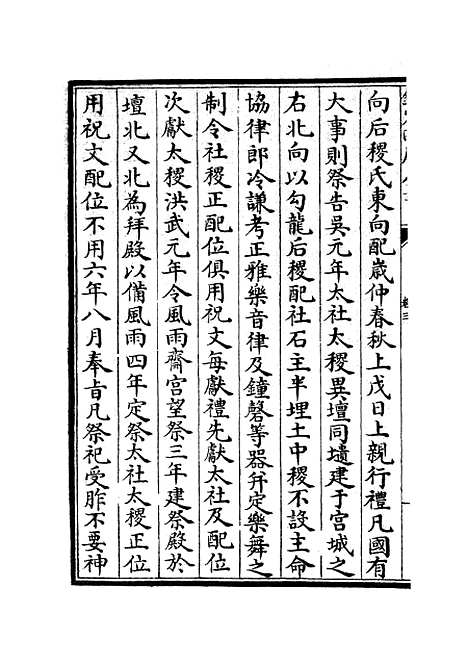 向后稷氏東向配歲仲春秋上戊日上親行禮凡國有
大事則祭告吳元年太社太稷異壇同壝建于宫城之
右北向以勾龍后稷配社石主半埋土中稷不設主命
協律郎冷謙考正雅樂音律及鐘磬等器并定樂舞之
制令社稷正配位俱用祝文每獻禮先獻太社及配位
次獻太稷洪武元年令風雨齋宫望祭三年建祭殿於
壇北又北為拜殿以備風雨四年定祭太社太稷正位
用祝文配位不用六年八月奉旨凡祭祀受胙不要神
卷三